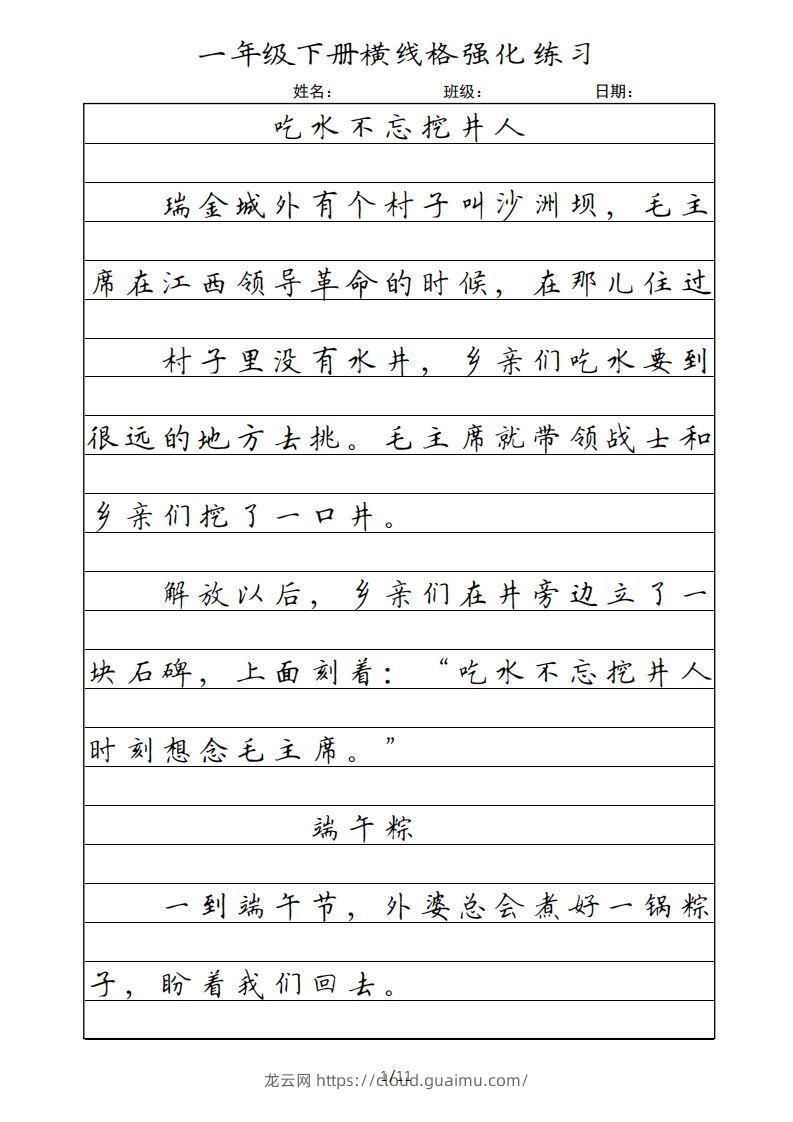 一年级下册横线格强化练习
姓名： 班级： 日期：
吃水不忘挖井人
瑞金城外有个村子叫沙洲坝，毛主
席在江西领导革命的时候，在那儿住过
村子里没有水井，乡亲们吃水要到
很远的地方去挑。毛主席就带领战士和
乡亲们挖了一口井。
解放以后，乡亲们在井旁边立了一
块石碑，上面刻着：“吃水不忘挖井人
时刻想念毛主席。”
端午粽
一到端午节，外婆总会煮好一锅粽
子，盼着我们回去。
1/11
龙云网 https://cloud.guaimu.com/